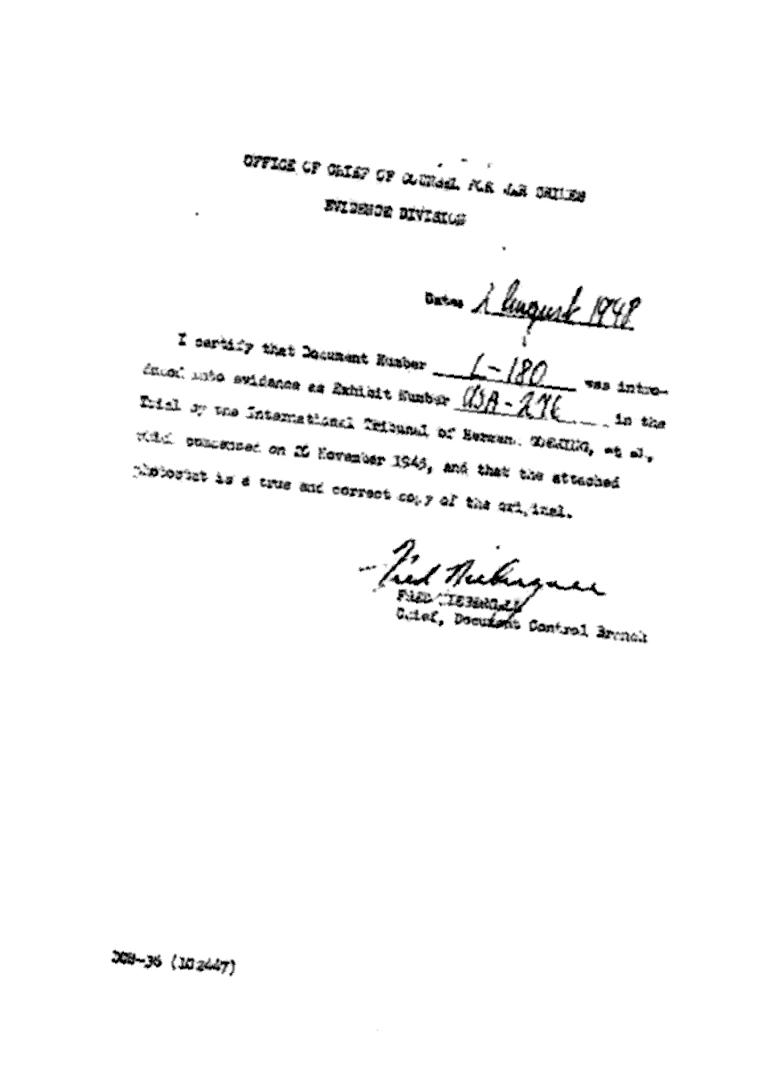 OFFICE OF CHIEF OF COUNSEL FOR WAR CRIMES
EVIDENCE DIVISION
Date: 2 August 1948
I certify that Document Number L-180 was intro-
duced into evidence as Exhibit Number USA-276 in the
Trial by the International Tribunal of Hermann GOERING, et al.,
which commenced on 20 November 1945, and that the attached
photostat is a true and correct copy of the original.
Fred Niebergall
FRED NIEBERGALL
Chief, Document Control Branch
(102447)